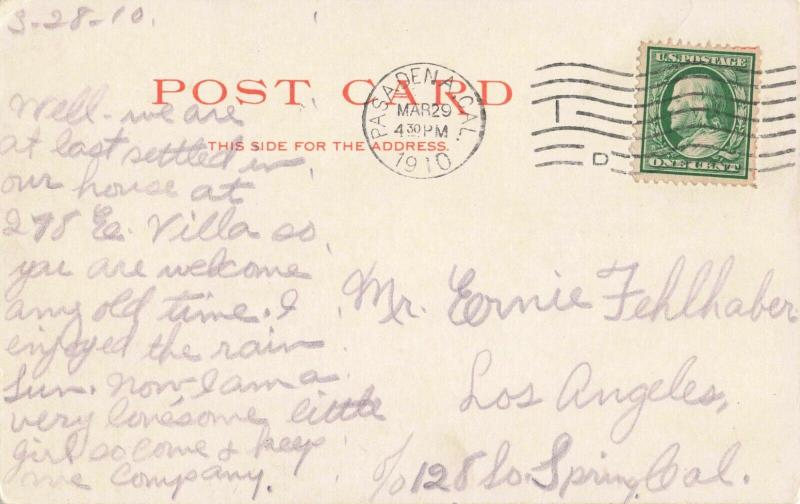 3-28-10.
POST CARD
THIS SIDE FOR THE ADDRESS.
PASADENA, CAL.
MAR 29
4 30 PM
1910
D
U.S. POSTAGE
ONE CENT
Well- we are
at last settled in
our house at
298 E. Villa so
you are welcome
any old time. I
enjoyed the rain
Sun. Now I am a
very lonesome little
girl so come & keep
me company.
Mr. Ernie Fehlhaber
Los Angeles,
c/o 128 So. Spring, Cal.